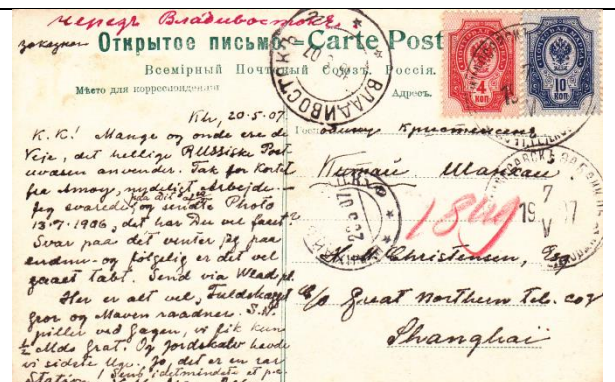 через Владивостокъ
заказное Открытое письмо. = Carte Post
Всемірный Почтовый Союзъ. Россія.
Мѣсто для корреспонденціи
Адресъ.
4
КОП
10
КОП
ВЛАДИВОСТОКЪ
Khv, 20-5-07
K. K! Mange og onde ere de
Veje, det hellige RUSSiske Post
væsen anvender. Tak for Kortet
fra Amoy, nydeligt Arbejde
paa Dit
Jeg svarede og sendte Photo
13-7-1906, det har Du vel faaet?
Svar paa det venter jeg paa
endnu og følgelig er det vel
gaaet tabt. Send via Wlad
Her er alt vel, Fuldskægget
gror og Maven raadner. S.N.
piller ved Gagen, vi fik kun
½ Mdo Grat. Og Jordskælv havde
vi sidste Uge. Jo, det er en rar
Station!
Господину Кристенсенъ
Китай Шанхай
1849
7
V
19 07
Christensen, Esq
c/o Great Northern Tel. Coy
Shanghai